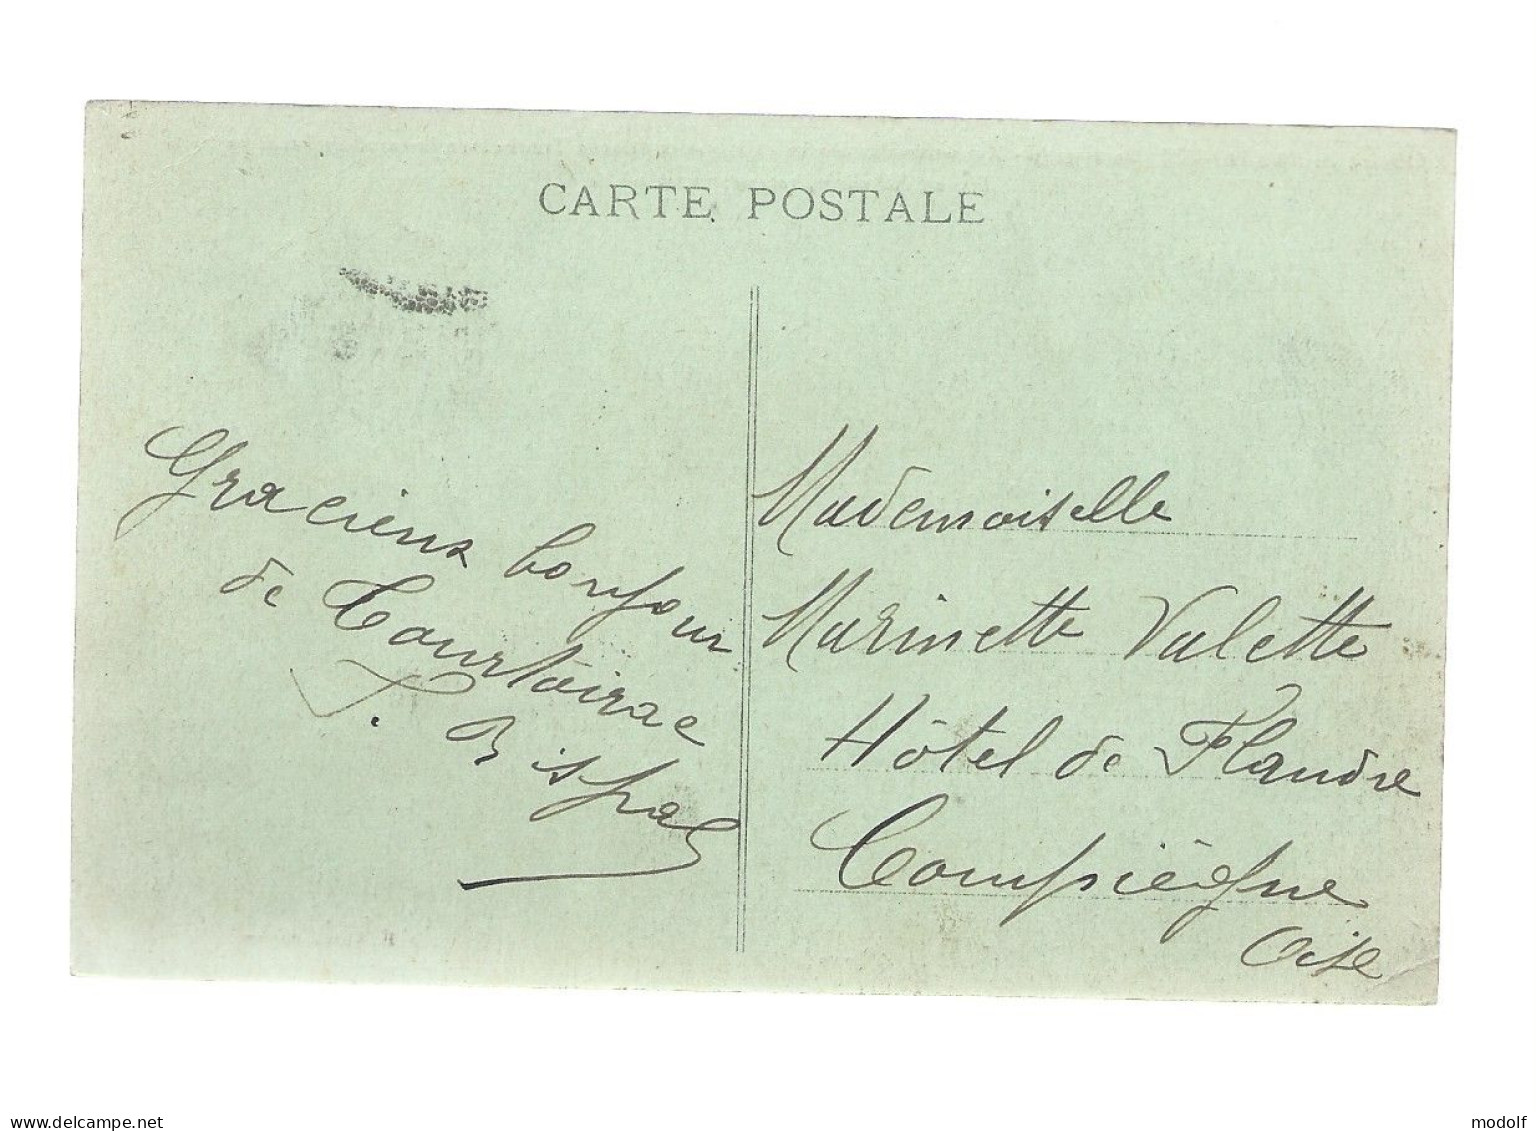 CARTE POSTALE
Gracieux bonjour
de Courtoirac
Mademoiselle
Marinette Valette
Hôtel de Flandre
Compiègne
Oise
delcampe.net
modolf